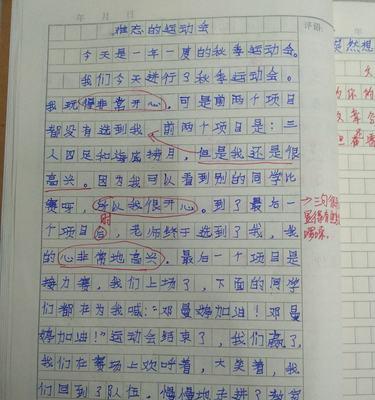 年 月 日
评语:
难忘的运动会
今天是一年一度的秋季运动会。
我们今天进行了秋季运动会。
我玩得非常开心。可是前两个项目
都没有选到我。前两个项目是:三
人四足和海底捞月,但是我还是很
高兴。因为我可以看到别的同学比
赛呀,所以我很开心。到了最后一
个项目时,老师终于选到了我,我
的心非常地高兴。最后一个项目是
接力赛,我们上场了,下面的同学
们都在为我喊:“邓曼婷加油!邓曼
婷加油!”运动会结束了,我们赢了,
我们在赛场上欢呼着,大笑着,我
们回到了队伍,慢慢地走进了教室
突然想